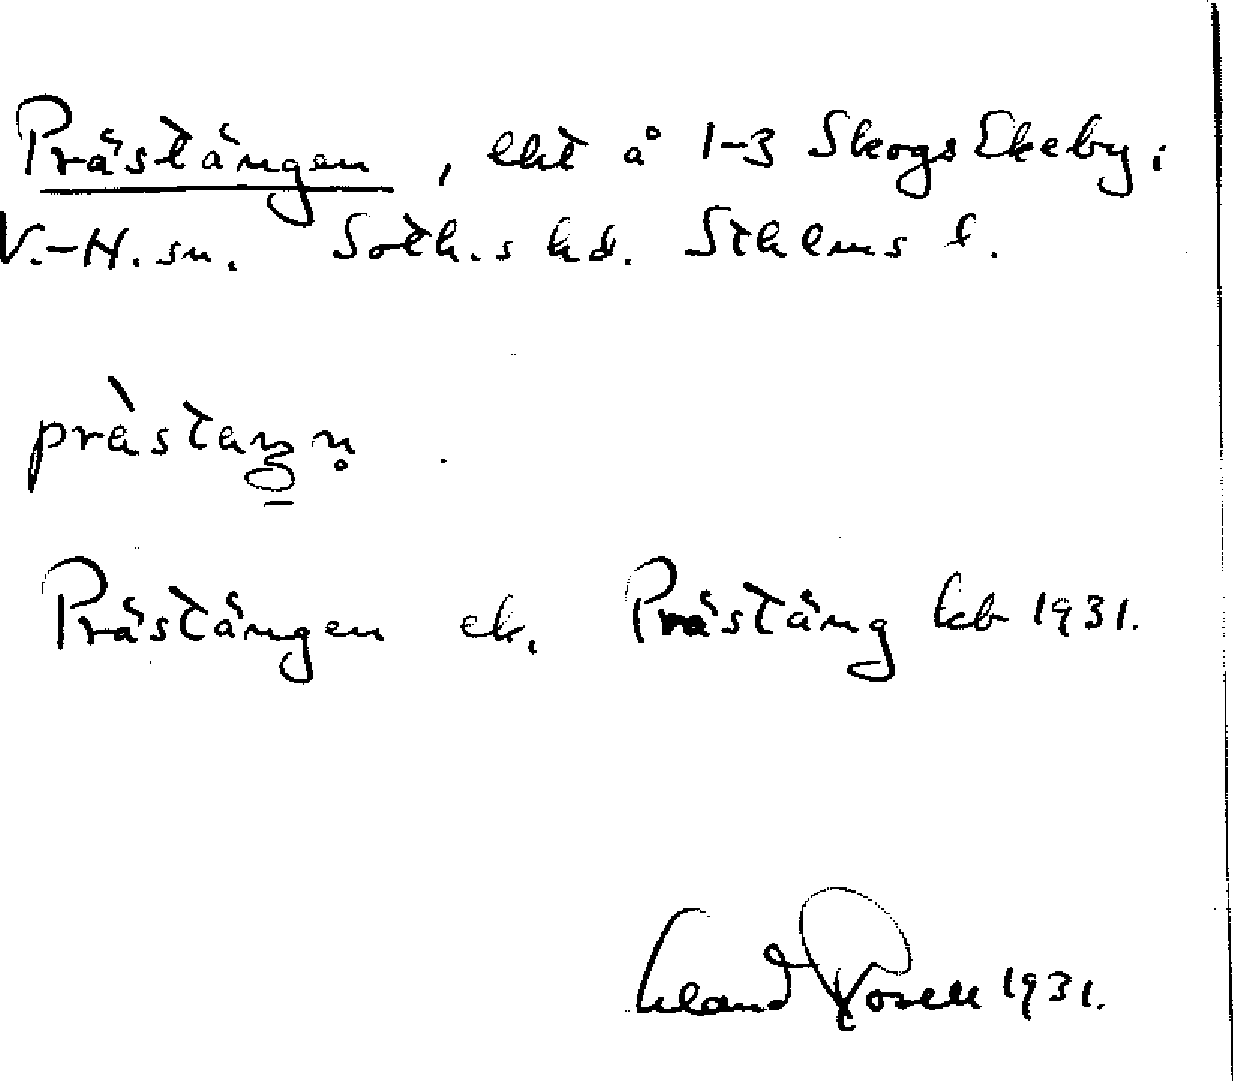 Prästängen, lht å 1-3 Skogs Ekeby i
V.-H. sn. Soth.s hd. Sthlms l.
prästaŋn̥
Prästängen ek. Prästäng kb 1931.
Erland Rosell 1931.